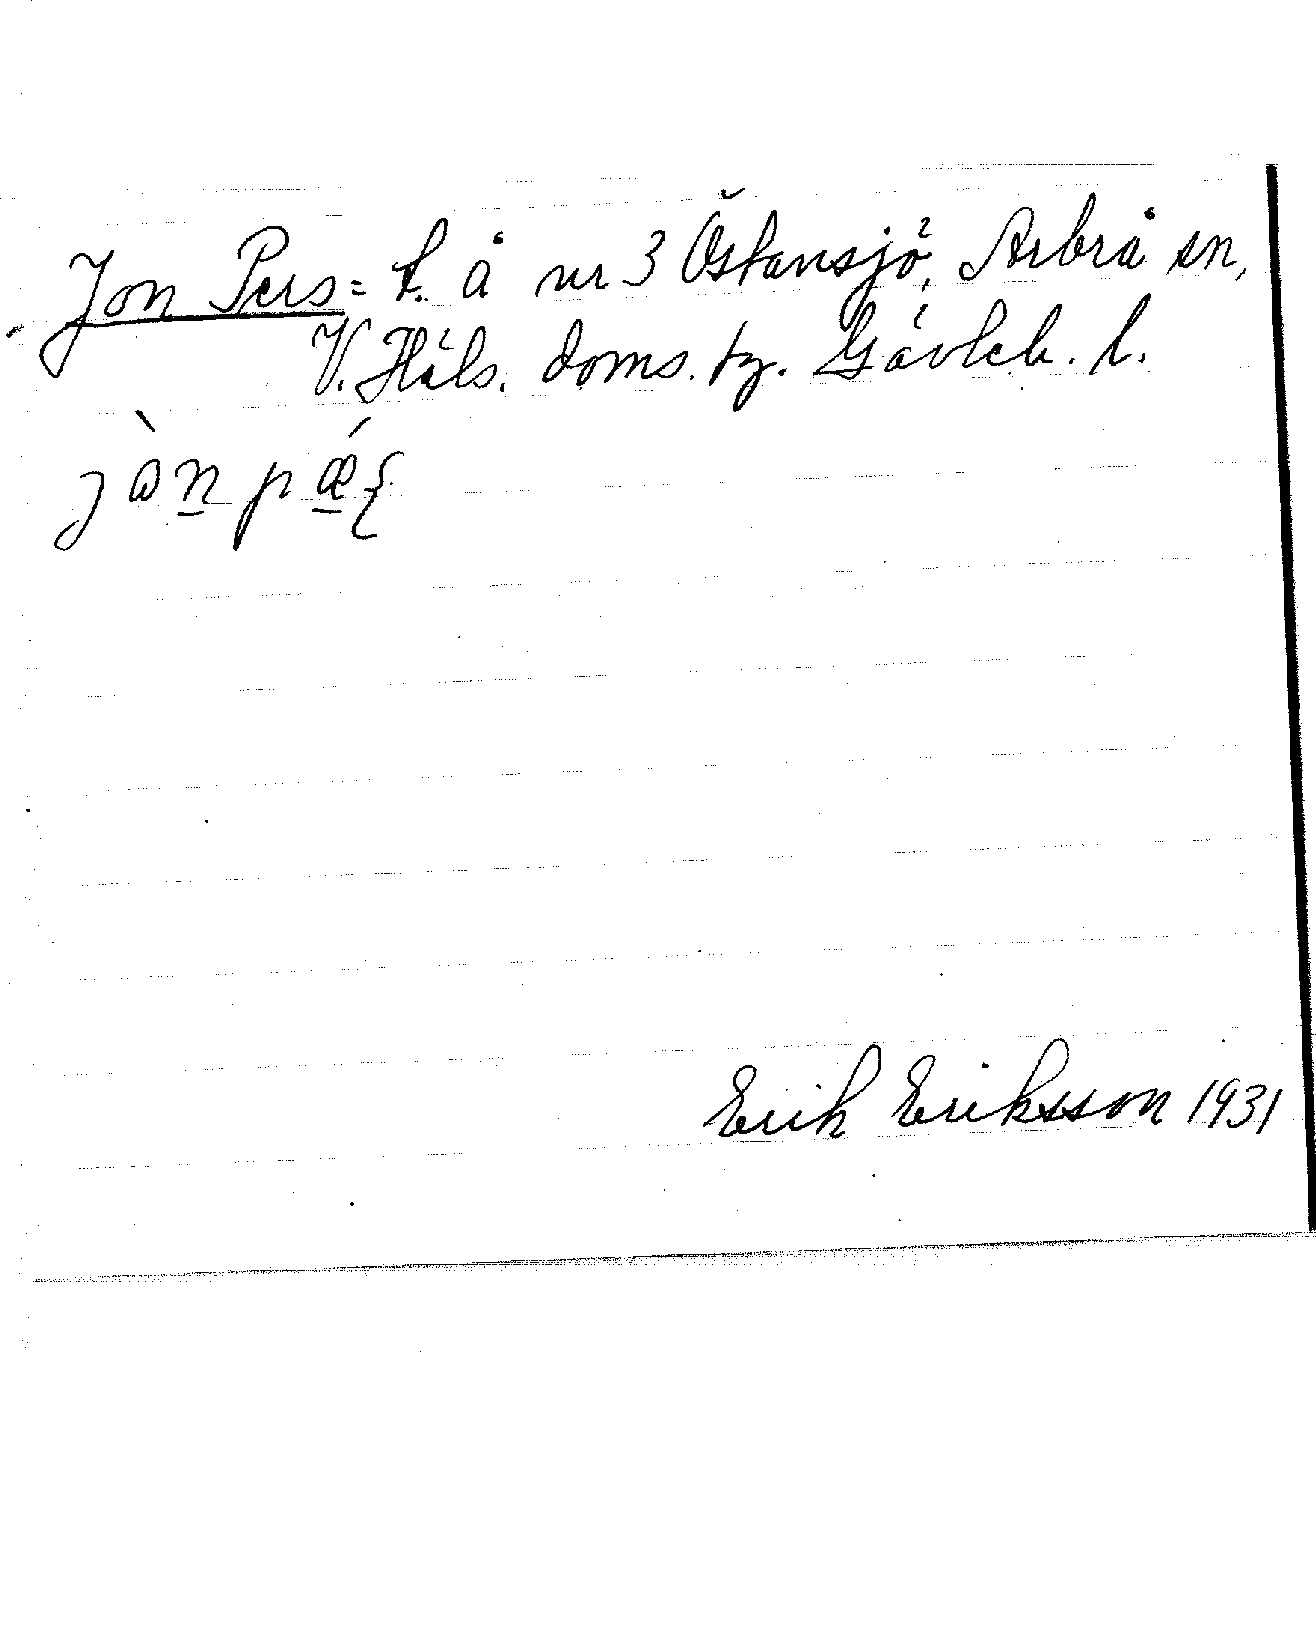 Jon Pers = t. å nr 3 Östansjö, Arbrå sn,
V. Häls. doms. tg. Gävleb. l.
jὼn̲ pǽ̲ʂ
Erik Eriksson 1931